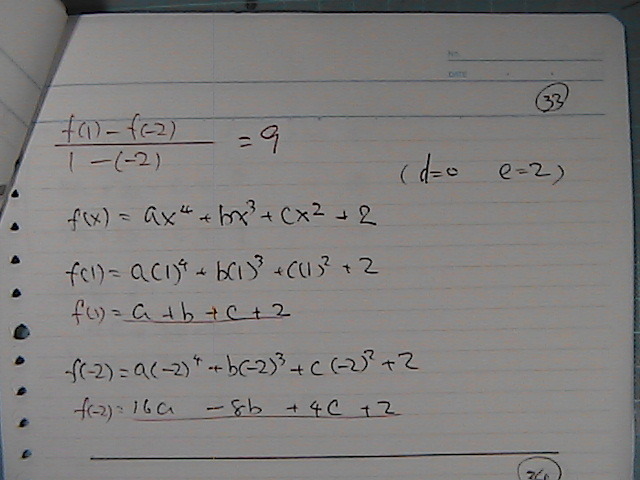 NO.
DATE
33
f(1) - f(-2) / 1 - (-2) = 9
(d=0 e=2)
f(x) = ax⁴ + bx³ + cx² + 2
f(1) = a(1)⁴ + b(1)³ + c(1)² + 2
f(1) = a + b + c + 2
f(-2) = a(-2)⁴ + b(-2)³ + c(-2)² + 2
f(-2) = 16a - 8b + 4c + 2